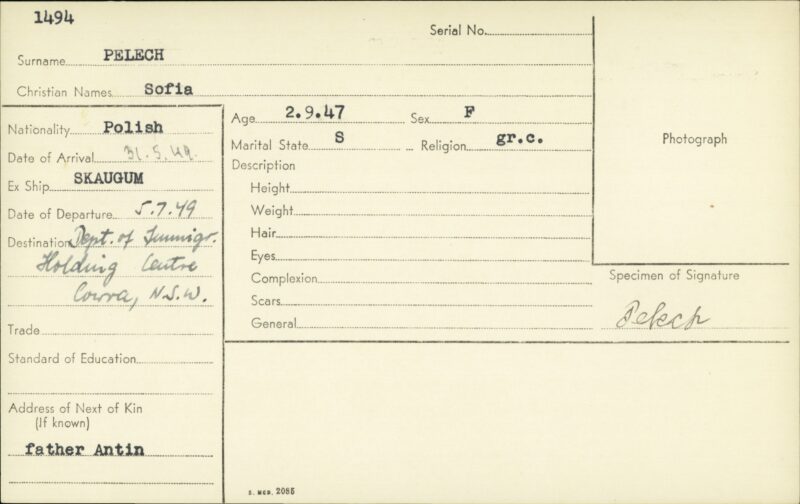 1494
Serial No.
Surname PELECH
Christian Names Sofia
Nationality Polish
Date of Arrival 31.5.49.
Ex Ship SKAUGUM
Date of Departure 5.7.49
Destination Dept. of Immigr.
Holding Centre
Cowra, N.S.W.
Trade
Standard of Education
Address of Next of Kin
(If known)
father Antin
Age 2.9.47 Sex F
Marital State S Religion gr.c.
Description
Height
Weight
Hair
Eyes
Complexion
Scars
General
Photograph
Specimen of Signature
Pelech
S. MCD. 2085